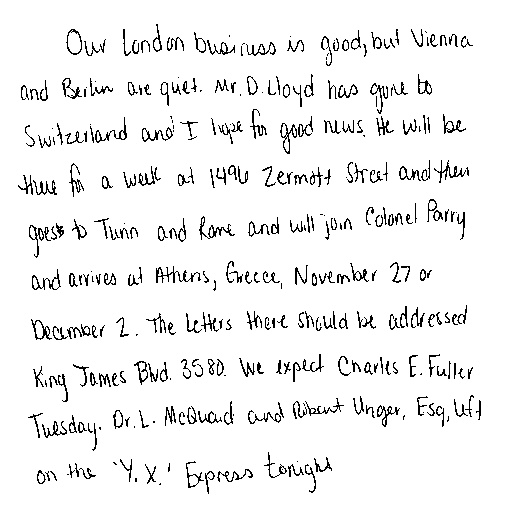 Our London business is good, but Vienna
and Berlin are quiet. Mr. D. Lloyd has gone to
Switzerland and I hope for good news. He will be
there for a week at 1496 Zermott Street and then
goes to Turin and Rome and will join Colonel Parry
and arrives at Athens, Greece, November 27 or
December 2. The letters there should be addressed
King James Blvd. 3580. We expect Charles E. Fuller
Tuesday. Dr. L. McQuaid and Robert Unger, Esq, left
on the 'Y. X.' Express tonight